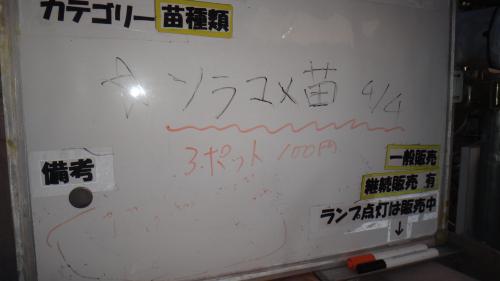 カテゴリー 苗種類
☆ソラマメ苗 4/4
3ポット 100円
一般販売
備考
継続販売 有
ランプ点灯は販売中
↓